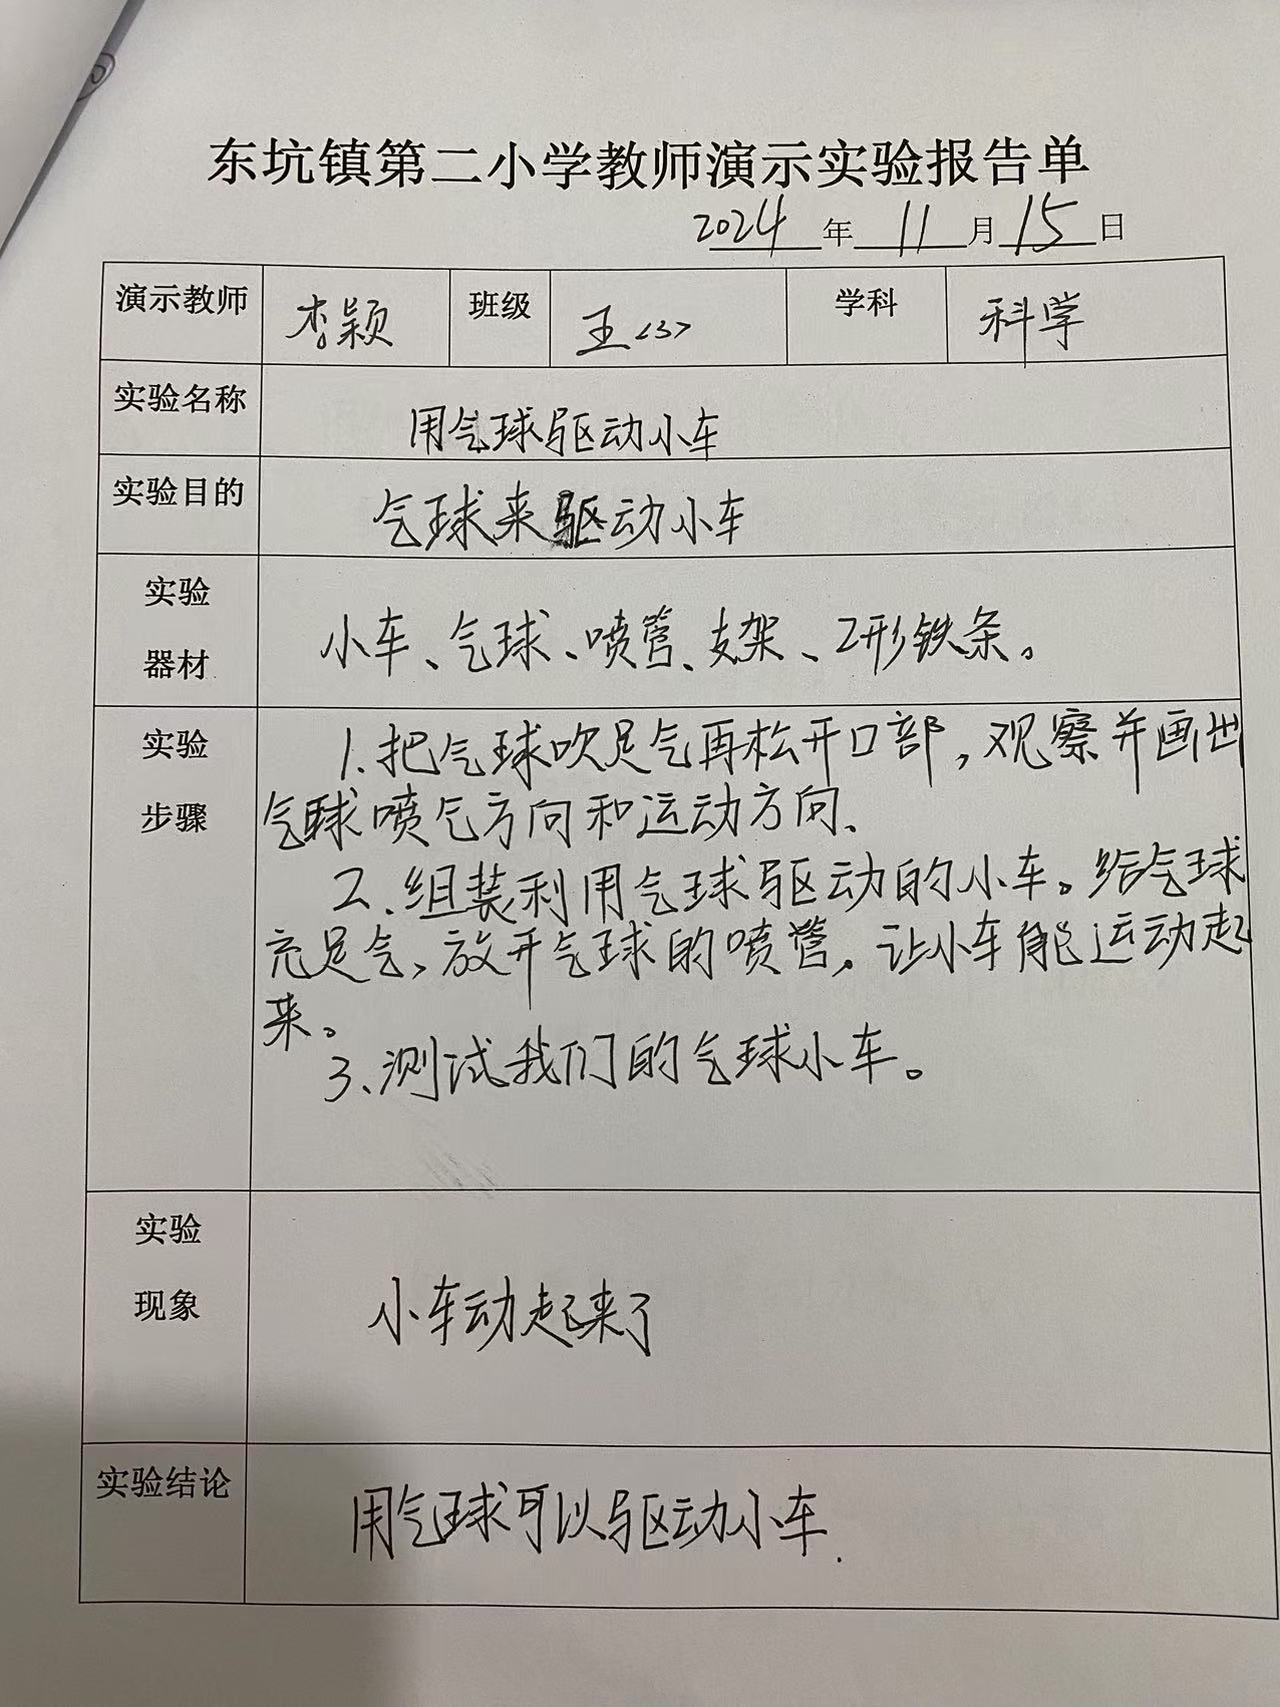 东坑镇第二小学教师演示实验报告单
2024年11月15日
演示教师 李颖 班级 王<3> 学科 科学
实验名称 用气球驱动小车
实验目的 气球来驱动小车
实验
器材
小车、气球、喷管、支架、Z形铁条。
实验
步骤
1.把气球吹足气再松开口部,观察并画出
气球喷气方向和运动方向、
2、组装利用气球驱动的小车。给气球
充足气,放开气球的喷管。让小车能运动起
来。
3、测试我们的气球小车。
实验
现象
小车动起来了
实验结论 用气球可以驱动小车.